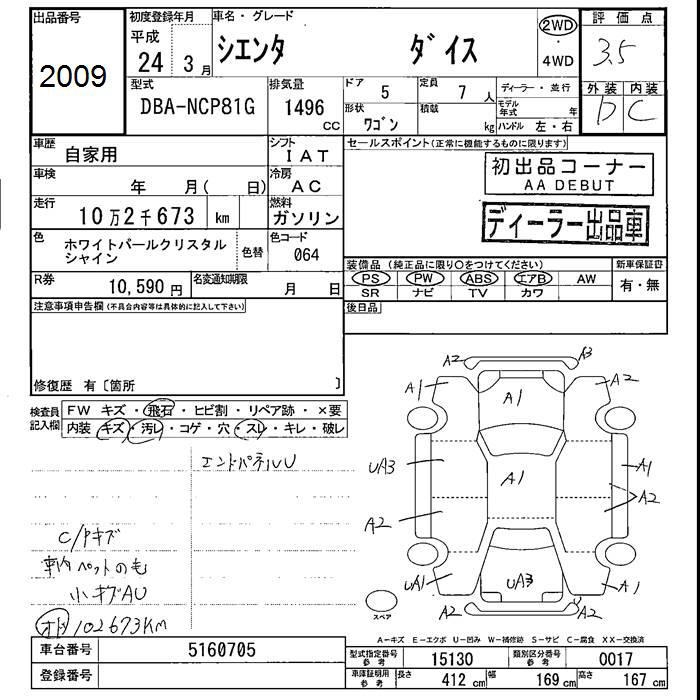 出品番号
2009
初度登録年月
平成
24 3月
車名・グレード
シエンタ ダイス
2WD
・
4WD
評価点
3.5
外装 内装
D C
型式
DBA-NCP81G
排気量
1496
CC
ドア
5
定員
7 人
形状
ワゴン
積載
kg
ディーラー・並行
モデル年式 年
ハンドル 左・右
車歴
自家用
シフト
IAT
車検
年 月( 日)
冷房
AC
走行
10万2千673 km
燃料
ガソリン
色
ホワイトパールクリスタル
シャイン
色替
色コード
064
R券
10,590 円
名変通知期限
月 日
セールスポイント(正常に機能するものに限ります)
初出品コーナー
AA DEBUT
ディーラー出品車
装備品(純正品に限り○をつけてください)
新車保証書
PS PW ABS エアB AW
SR ナビ TV カワ
有・無
後日品
注意事項申告欄(不具合内容等は具体的に記入して下さい)
修復歴 有〔箇所 〕
検査員
記入欄
FW キズ・飛石・ヒビ割・リペア跡・×要
内装 キズ・汚レ・コゲ・穴・スレ・キレ・破レ
エンドパネルU
C/Pキズ
車内ペットの毛
小キズAU
オド 102673KM
A2 A3
A1 A1 A2
UA3 A1 A1
A2 A2
UA1 UA3 A1
A2 A2
スペア
A-キズ E-エクボ U-凹み W-補修跡 S-サビ C-腐食 XX-交換済
車台番号
5160705
登録番号
型式指定番号
参考
15130
類別区分番号
参考
0017
車庫証明用
参考
長さ
412 cm
幅
169 cm
高さ
167 cm